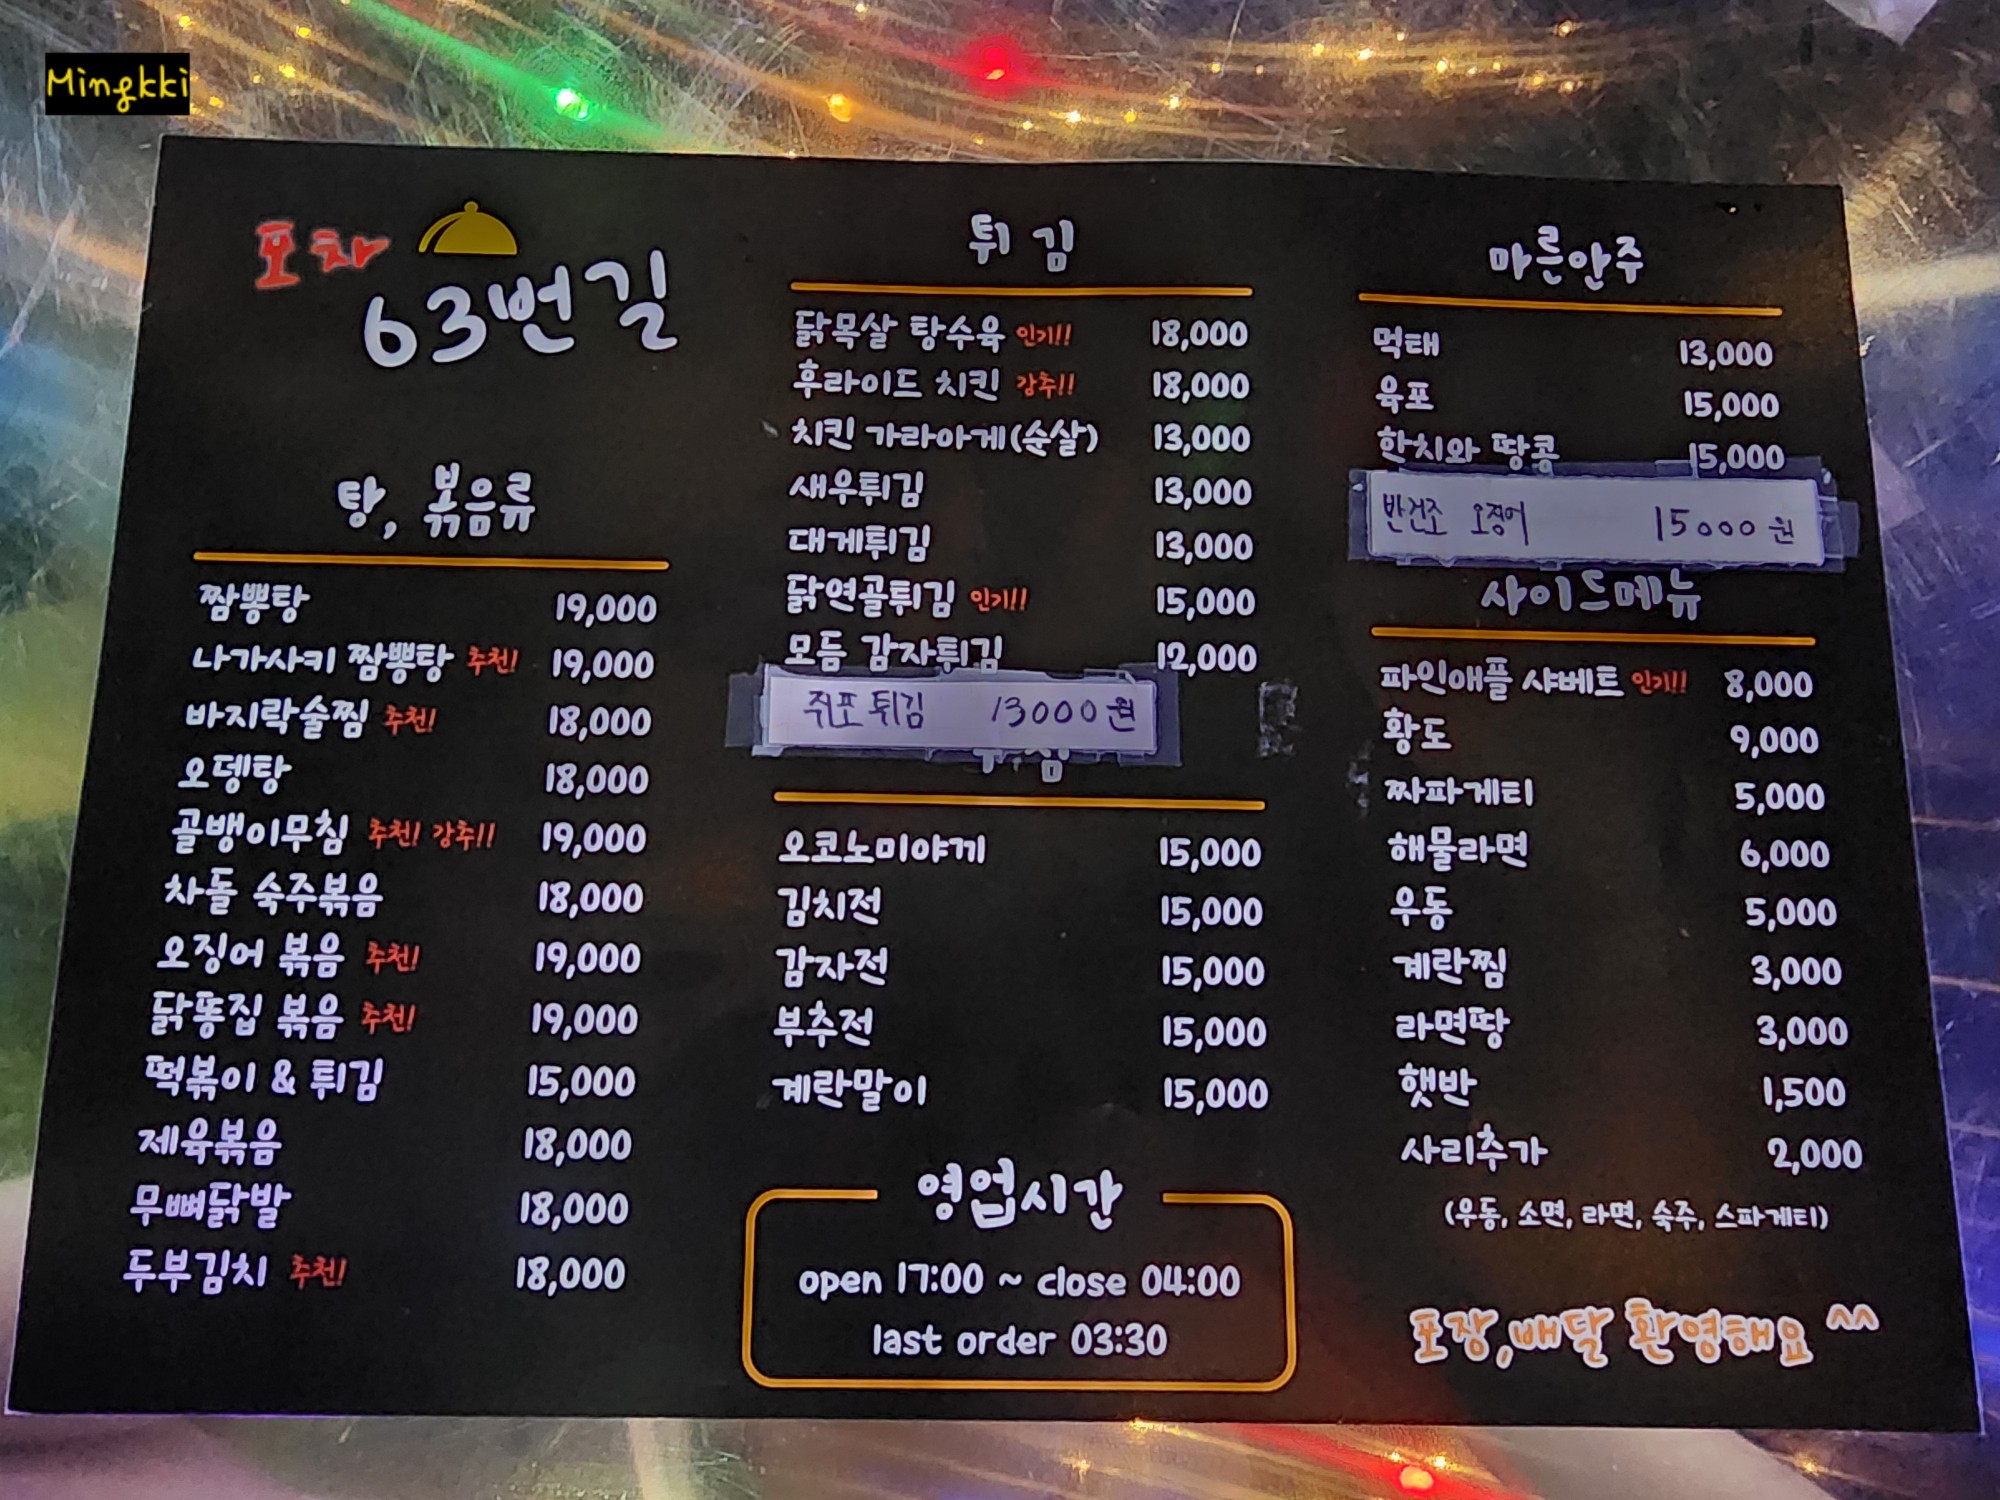 Mingkki
포차
63번길
탕, 볶음류
짬뽕탕 19,000
나가사키 짬뽕탕 추천! 19,000
바지락술찜 추천! 18,000
오뎅탕 18,000
골뱅이무침 추천! 강추!! 19,000
차돌 숙주볶음 18,000
오징어 볶음 추천! 19,000
닭똥집 볶음 추천! 19,000
떡볶이 & 튀김 15,000
제육볶음 18,000
무뼈닭발 18,000
두부김치 추천! 18,000
튀김
닭목살 탕수육 인기!! 18,000
후라이드 치킨 강추!! 18,000
치킨 가라아게(순살) 13,000
새우튀김 13,000
대게튀김 13,000
닭연골튀김 인기!! 15,000
모듬 감자튀김 12,000
쥐포튀김 13000원
오코노미야끼 15,000
김치전 15,000
감자전 15,000
부추전 15,000
계란말이 15,000
영업시간
open 17:00 ~ close 04:00
last order 03:30
마른안주
먹태 13,000
육포 15,000
한치와 땅콩 15,000
반건조 오징어 15000원
사이드메뉴
파인애플 샤베트 인기!! 8,000
황도 9,000
짜파게티 5,000
해물라면 6,000
우동 5,000
계란찜 3,000
라면땅 3,000
햇반 1,500
사리추가 2,000
(우동, 소면, 라면, 숙주, 스파게티)
포장,배달 환영해요 ^^